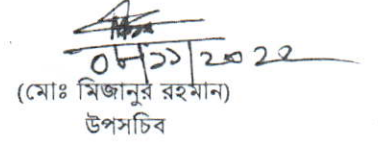 ০৮/১১/২০২২
(মোঃ মিজানুর রহমান)
উপসচিব